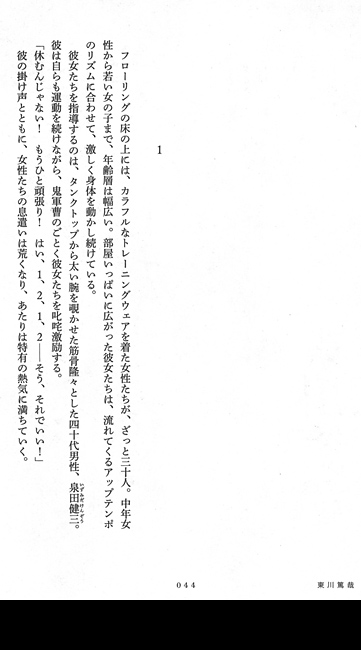 1
フローリングの床の上には、カラフルなトレーニングウェアを着た女性たちが、ざっと三十人。中年女
性から若い女の子まで、年齢層は幅広い。部屋いっぱいに広がった彼女たちは、流れてくるアップテンポ
のリズムに合わせて、激しく身体を動かし続けている。
彼女たちを指導するのは、タンクトップから太い腕を覗かせた筋骨隆々とした四十代男性、泉田健三。
いずみだけんぞう
彼は自らも運動を続けながら、鬼軍曹のごとく彼女たちを叱咤激励する。
「休むんじゃない! もうひと頑張り! はい、1、2、1、2――そう、それでいい!」
彼の掛け声とともに、女性たちの息遣いは荒くなり、あたりは特有の熱気に満ちていく。
044
東川篤哉